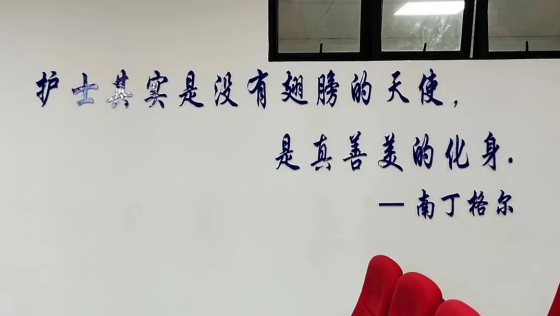 护士其实是没有翅膀的天使,
是真善美的化身.
—南丁格尔